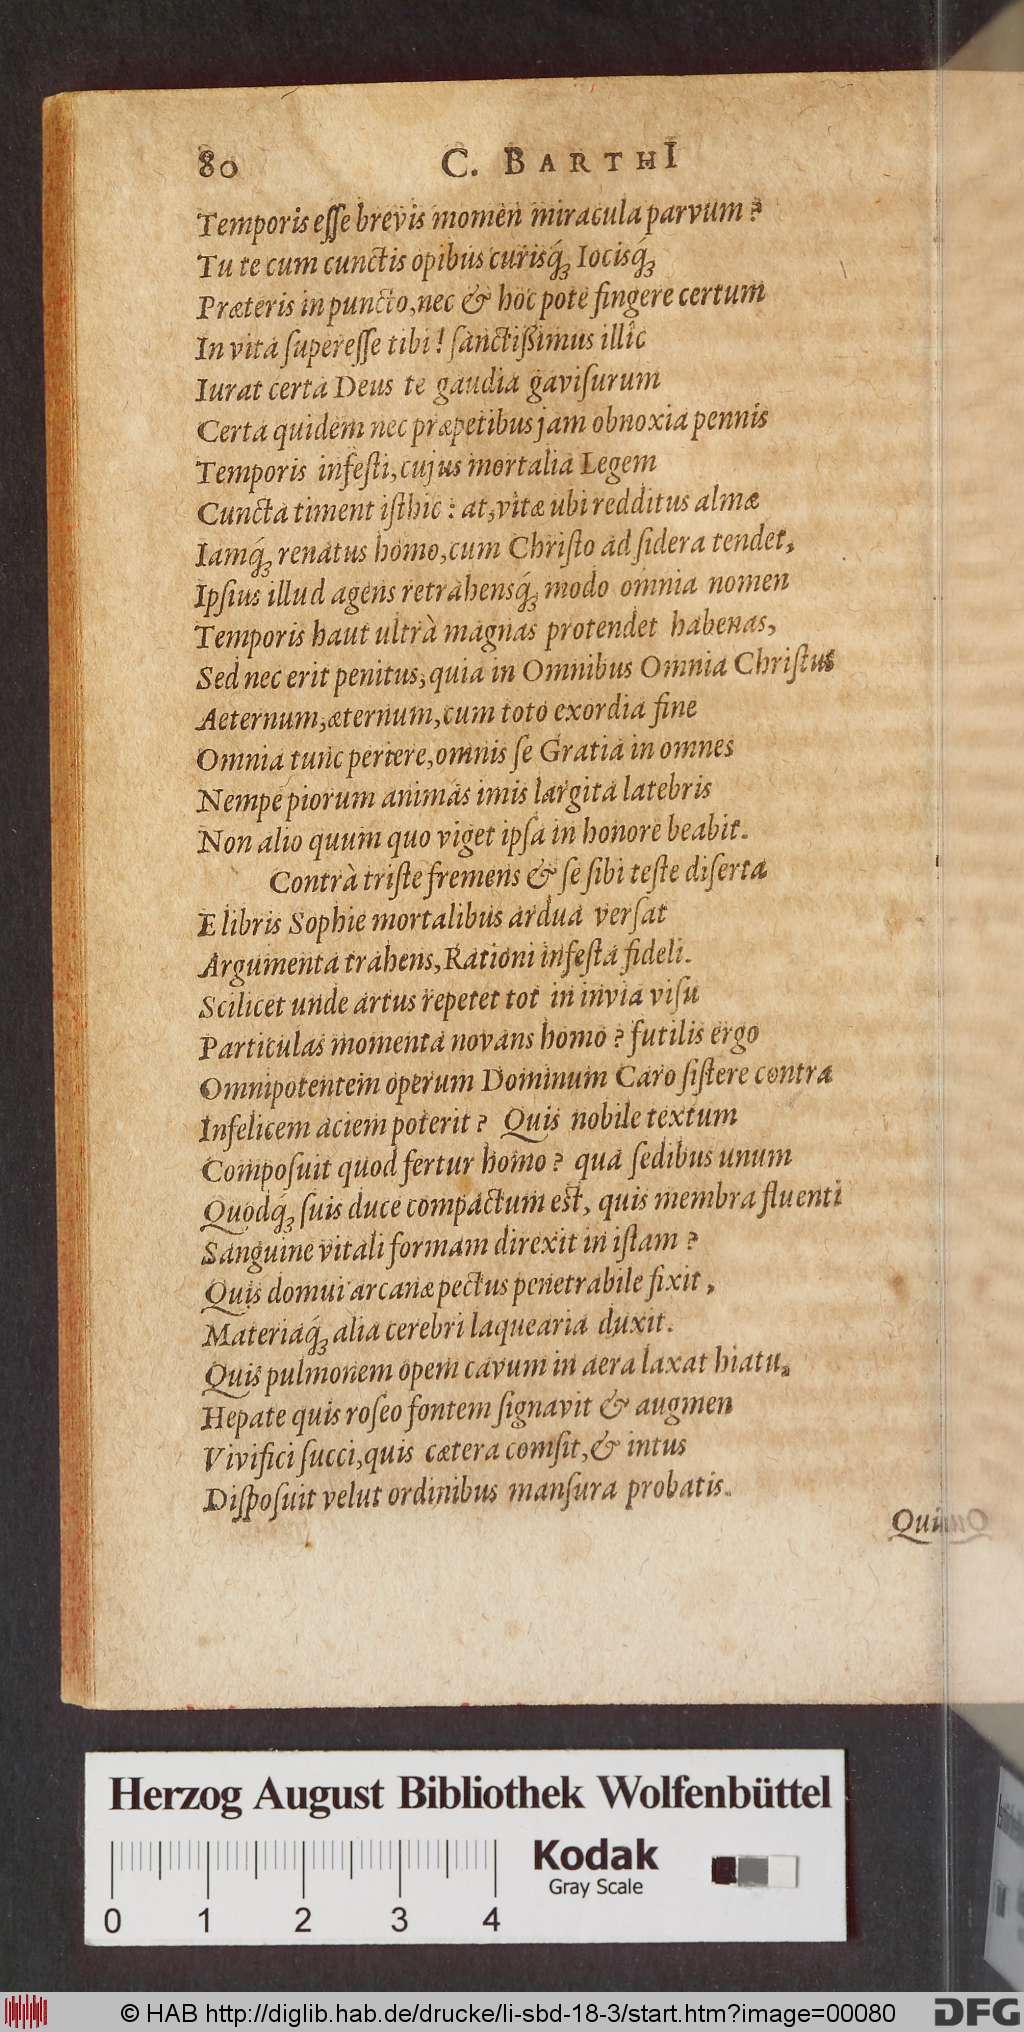 80 C. BARTHI
Temporis eſſe brevis momen miracula parvum?
Tu te cum cunctis opibus curisq́ꝫ Iocisq́ꝫ
Præteris in puncto, nec & hoc pote fingere certum
In vita ſupereſſe tibi! ſanctißimus illîc
Iurat certa Deus te gaudia gaviſurum
Certa quidem nec præpetibus jam obnoxia pennis
Temporis infeſti, cujus mortalia Legem
Cuncta timent iſthic: at, vitæ ubi redditus almæ
Iamq́ꝫ renatus homo, cum Chriſto ad ſidera tendet,
Ipſius illud agens retrahensq́ꝫ modo omnia nomen
Temporis haut ultrà magnas protendet habenas,
Sed nec erit penitus, quia in Omnibus Omnia Chriſtus
Aeternum, æternum, cum toto exordia fine
Omnia tunc periere, omnis ſe Gratia in omnes
Nempe piorum animas imis largita latebris
Non alio quum quo viget ipſa in honore beabit.
Contrà triſte fremens & ſe ſibi teſte diſerta
E libris Sophie mortalibus ardua verſat
Argumenta trahens, Rationi infeſta fideli.
Scilicet unde artus repetet tot in invia viſu
Particulas momenta novans homo? futilis ergo
Omnipotentem operum Dominum Caro ſiſtere contra
Infelicem aciem poterit? Quis nobile textum
Compoſuit quod fertur homo? qua ſedibus unum
Quodq́ꝫ ſuis duce compactum eſt, quis membra fluenti
Sanguine vitali formam direxit in iſtam?
Quis domui arcanæ pectus penetrabile fixit,
Materiaq́ꝫ alia cerebri laquearia duxit.
Quis pulmonem opem cavum in aera laxat hiatu,
Hepate quis roſeo fontem ſignavit & augmen
Vivifici ſucci, quis cætera comſit, & intus
Diſpoſuit velut ordinibus manſura probatis.
Herzog August Bibliothek Wolfenbüttel
Kodak
Gray Scale
0 1 2 3 4
© HAB http://diglib.hab.de/drucke/li-sbd-18-3/start.htm?image=00080
DFG